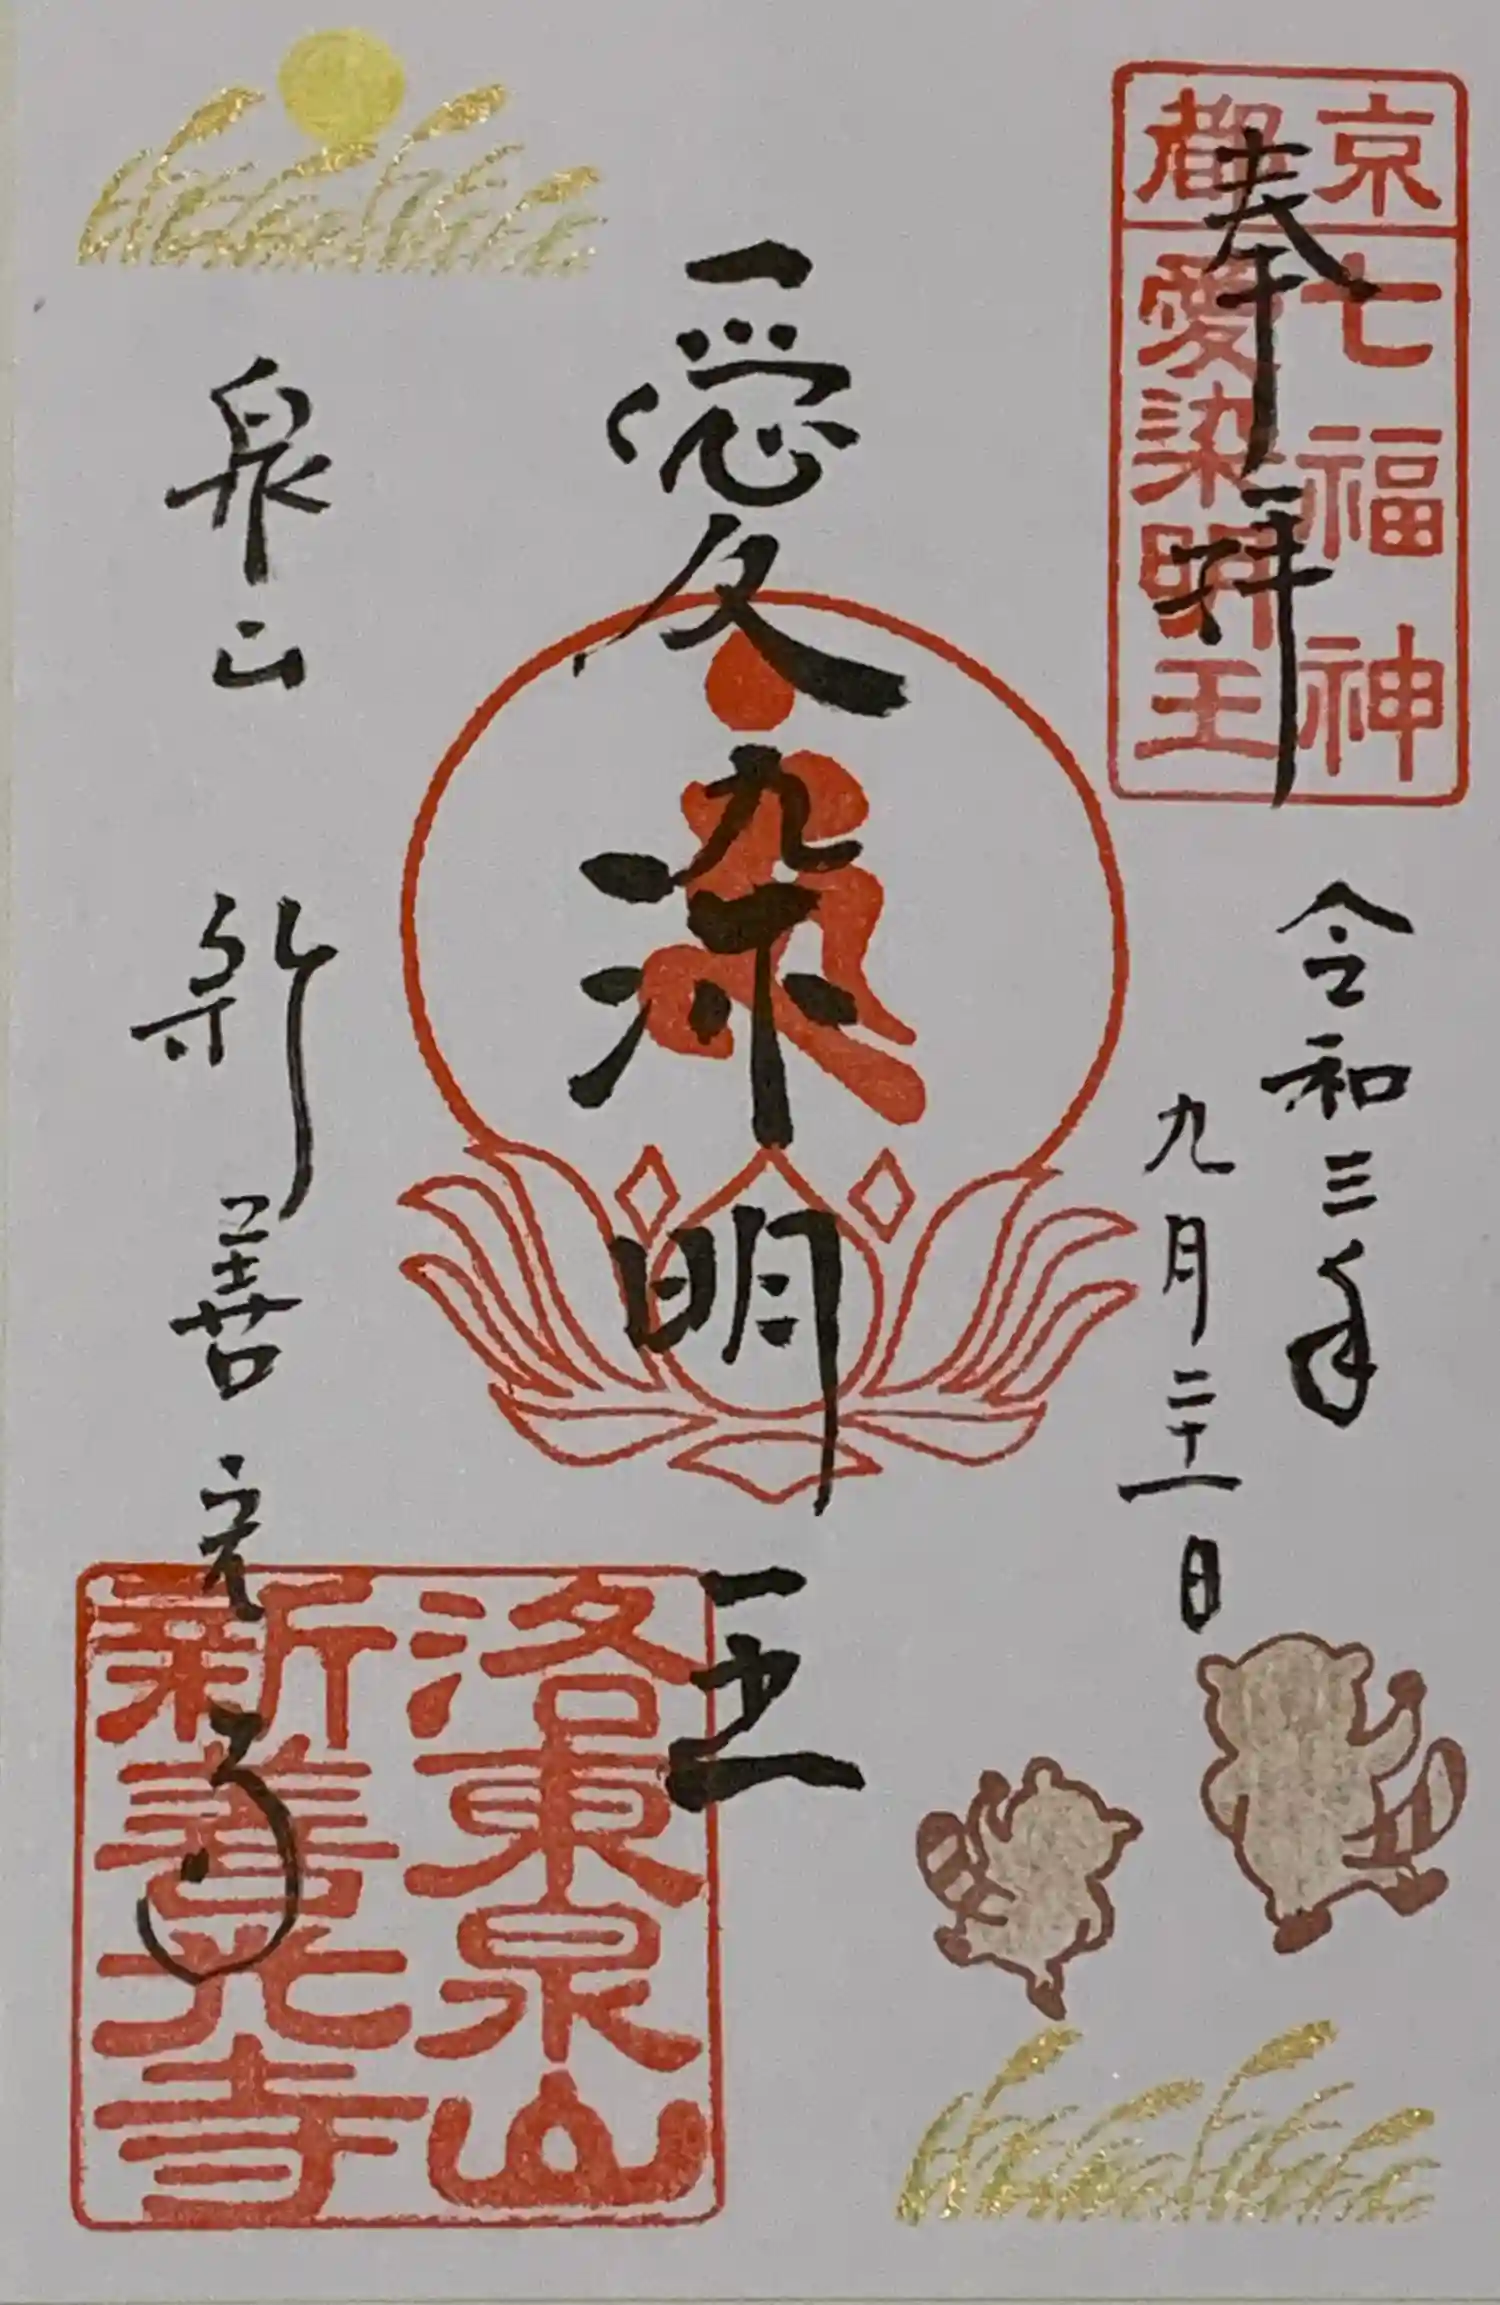 奉拝
京都
七福神
愛染明王
令和三年
九月二十一日
愛染明王
泉山 新善光寺
洛東泉山
新善光寺